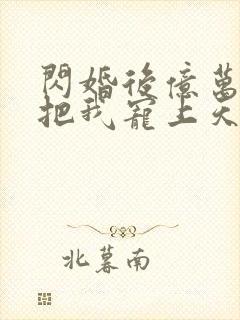 閃婚後億萬
把我寵上天
北暮南